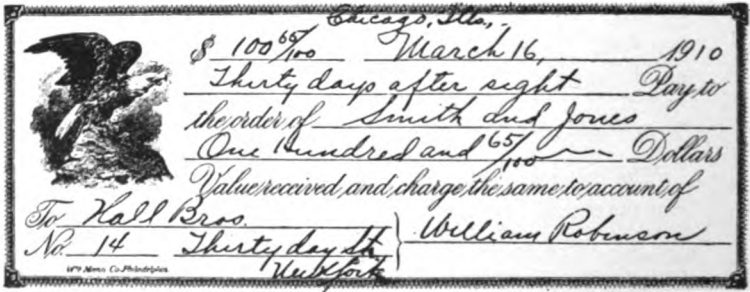 Chicago, Ills.,
$ 100 65/100 March 16, 1910
Thirty days after sight Pay to
the order of Smith and Jones
One hundred and 65/100 Dollars
Value received, and charge the same to account of
To Hall Bros. William Robinson
No. 14 Thirty day St.
New York
Co. Philadelphia